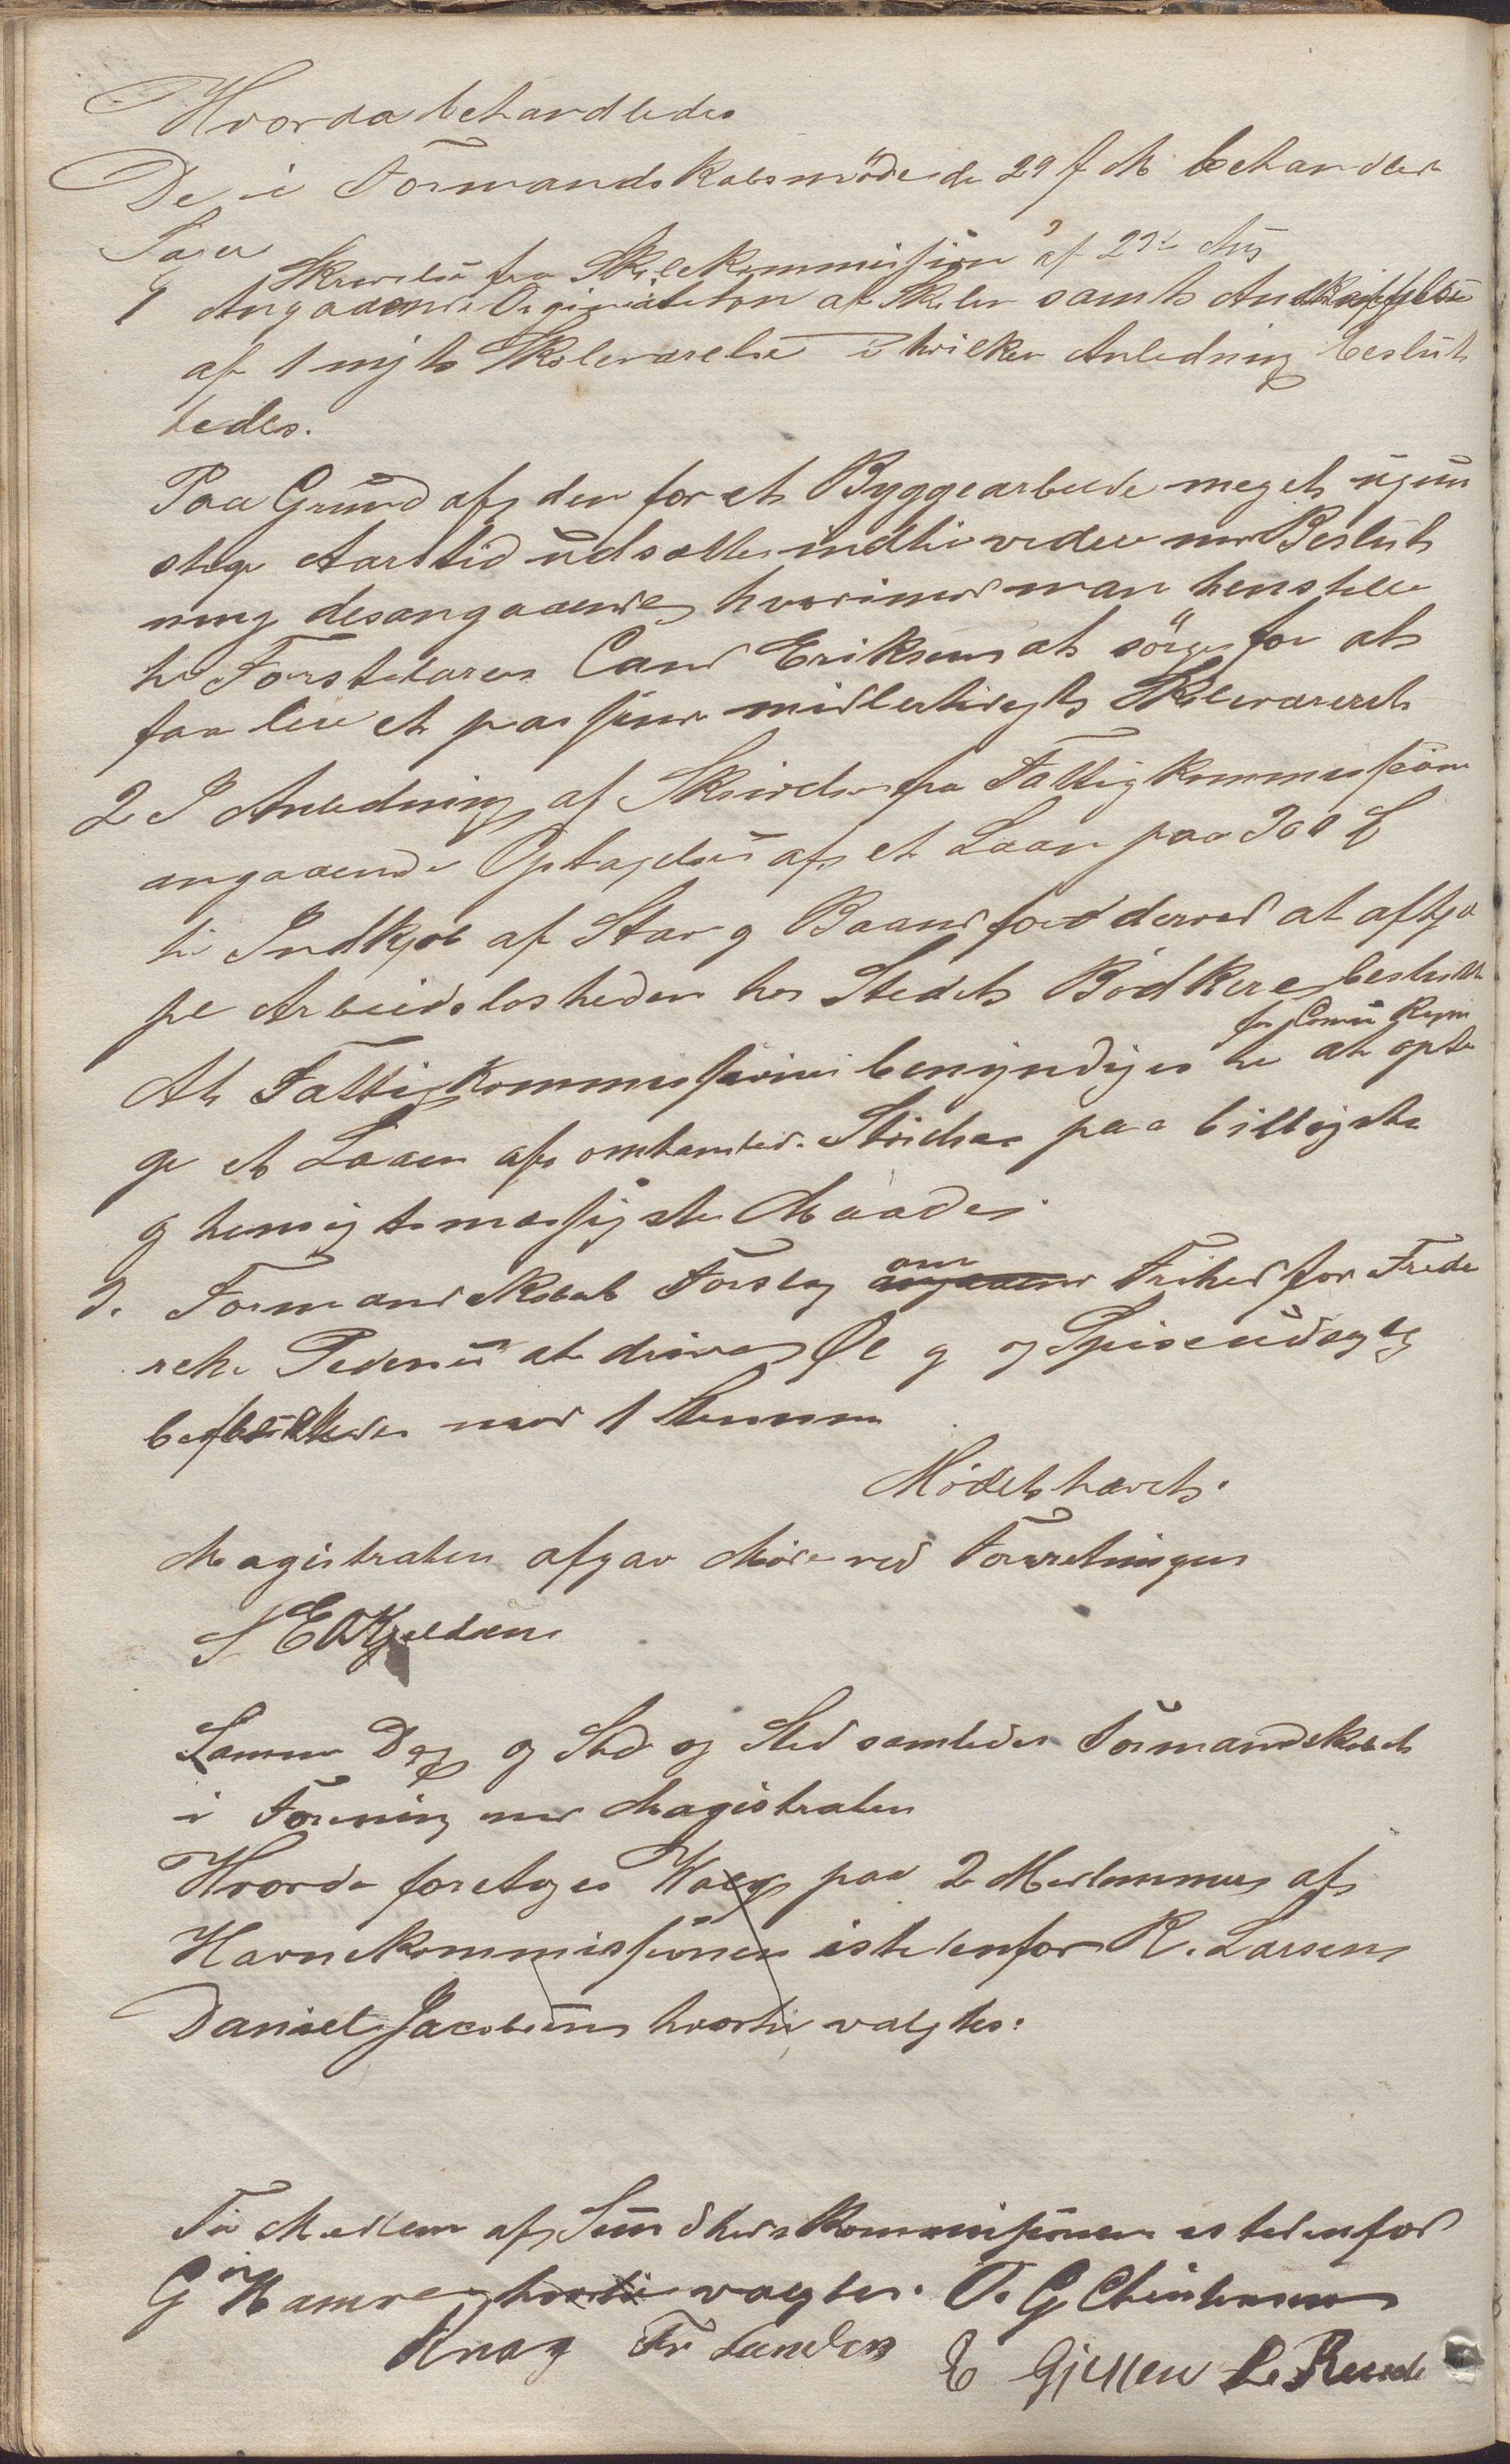 Hvorda behandledes
De i Formandskabsmøde de 29 f M behandlede
Sager
1 Skrivelse fra Skolekommissionen af 23de Aug
Angaaende Organisation af Skolen samt Anskaffelse
af 1 nyt Skoleværelse i hvilken Anledning beslut
tedes.
Paa Grund af den for et Byggearbeide meget ugun
stige Aarstid udsættes indtil videre Beslut
ning desangaaende, hvorimod man henstiller
til Førstelærer Cand Eriksen at sørge for at
faa leie et passende midlertidigt Skoleværelse
2 I Anledning af Skrivelse fra Fattigkommissionen
angaaende Optagelse af et Laan paa 300
til Indkjøb af Stav og Baand for derved at afhjæl
pe Arbeidsløsheden hos Stedets Bødkere, besluttedes
At Fattigkommissionen bemyndiges til for Comu Regn at opta
ge et Laan af omhandlede Størrelse paa billigste
og hensigtsmæssigste Maade.
3. Formandskabets Forslag angaaende om Frihed for Frede
rekke Pedersen at drive Øl g og Spiseudsalg
besluttedes mod 1 Stemme
Mødet hævet.
Magistraten afgav Møde ved Forretningen
S E Kjeldsen
Samme Dag og Sted og Sted samledes Formandskabet
i Forening med Magistraten
Hvorda foretoges Valg paa 2 Medlemmer af
Havnekommissionen istedenfor R. Larsen
Daniel Jacobsen hvortil valgtes:
Til Medlem af Sundhedskommissionen istedenfor
G Hamre hvortil valgtes. O. G. Christensen
Knag Fr Lunden E Gjessen